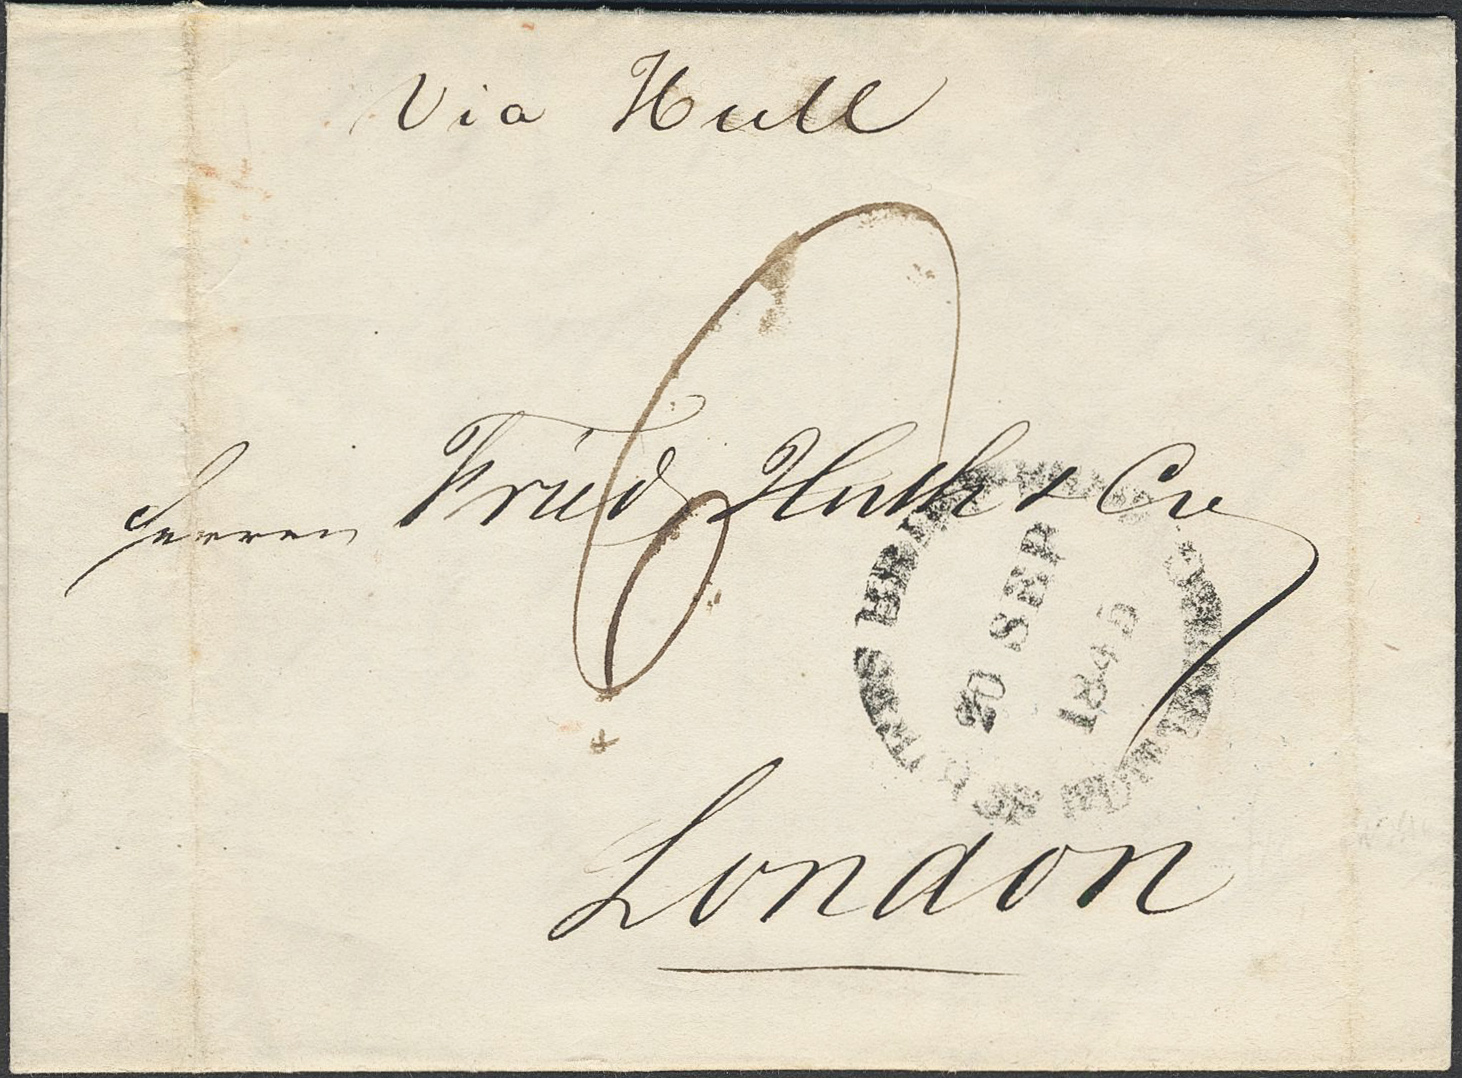 Via Hull
Herren Fried Huth & Co
20 SEP
1845
London